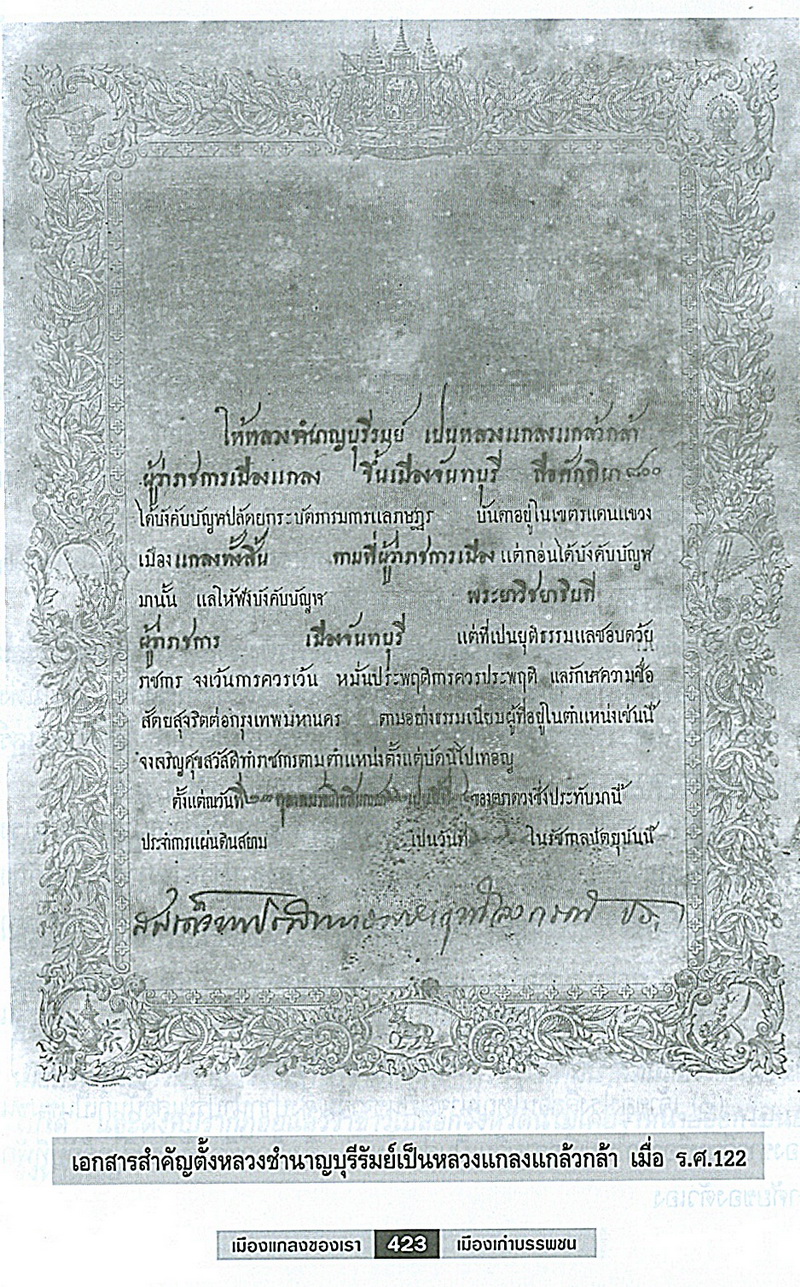 ให้หลวงชำนาญบุรีรมย์ เป็นหลวงแกลงแกล้วกล้า
ผู้ว่าราชการเมืองแกลง ขึ้นเมืองจันทบุรี ถือศักดินา ๘๐๐
ได้บังคับบัญชาปลัดยกระบัตรกรมการแลราษฎร บันดาอยู่ในเขตรแดนแขวง
เมืองแกลงทั้งสิ้น ตามที่ผู้ว่าราชการเมือง แต่ก่อนได้บังคับบัญชา
มานั้น แลให้ฟังบังคับบัญชา พระยาวิชยาธิบดี
ผู้ว่าราชการ เมืองจันทบุรี แต่ที่เป็นยุติธรรมแลชอบด้วย
ราชการ จงเว้นการควรเว้น หมั่นประพฤติการควรประพฤติ แลรักษาความซื่อ
สัตยสุจริตต่อกรุงเทพมหานคร ตามอย่างธรรมเนียมผู้ที่อยู่ในตำแหน่งเช่นนี้
จงเจริญศุขสวัสดิทำราชการตามตำแหน่งตั้งแต่บัดนี้ไปเทอญ
ตั้งแต่ณวันที่ ของตราดวงซึ่งประทับมานี้
ประจำการแผ่นดินสยาม เปนวันที่ ในรัชกาลปัตยุบันนี้
เอกสารสำคัญตั้งหลวงชำนาญบุรีรัมย์เป็นหลวงแกลงแกล้วกล้า เมื่อ ร.ศ.122
เมืองแกลงของเรา 423 เมืองเก่าบรรพชน